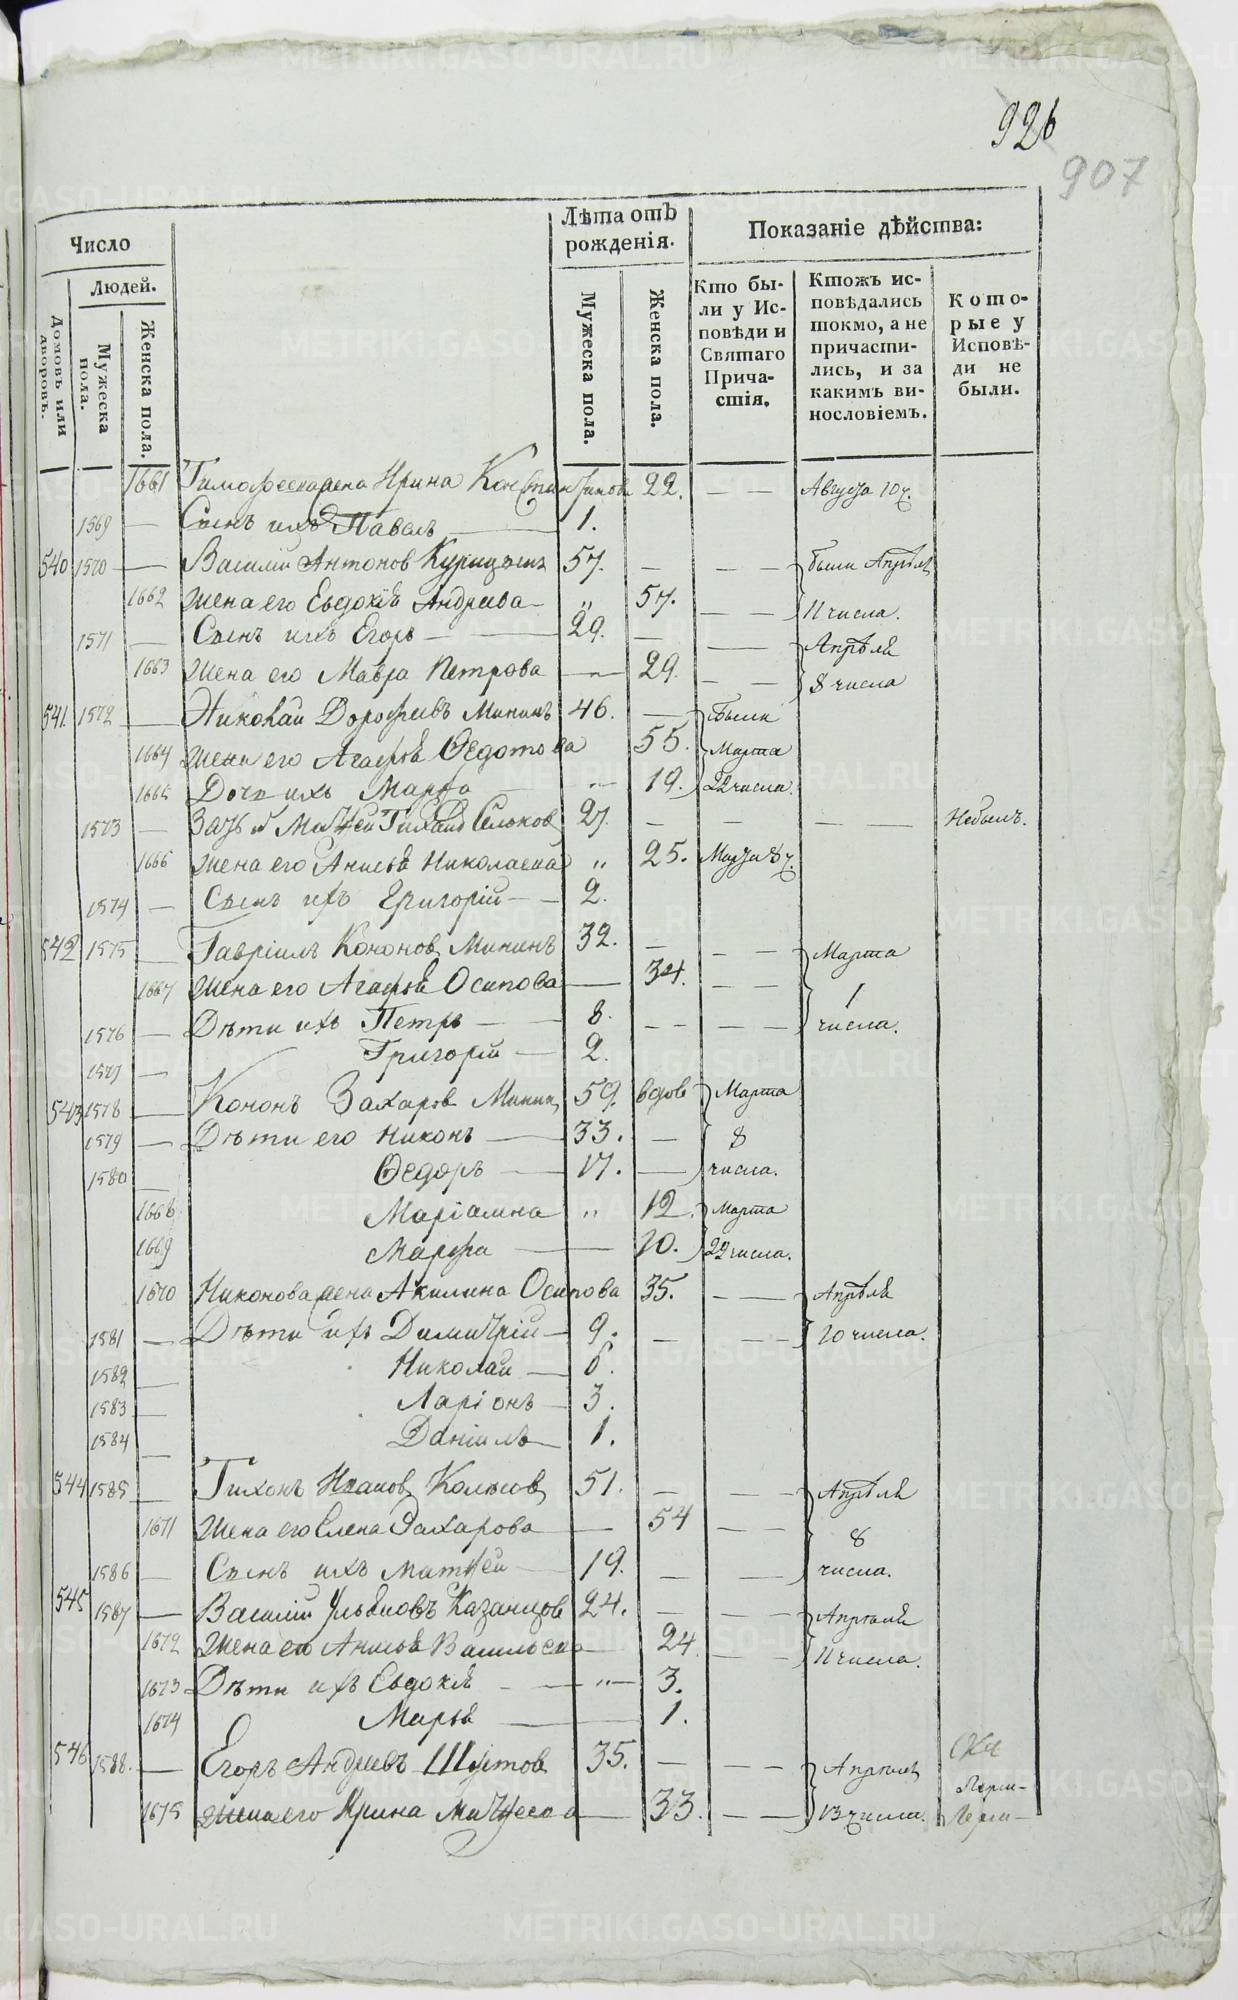 926
907
Число
Лѣта отъ рожденія.
Показаніе дѣйства:
Людей.
Домовъ или дворовъ.
Мужеска пола.
Женска пола.
Мужеска пола.
Женска пола.
Кто были у Исповѣди и Святаго Причастія.
Ктожъ исповѣдались токмо, а не причастились, и за какимъ винословіемъ.
Которые у Исповѣди не были.
1661 Тимофеева жена Ирина Константинова 22. — — Августа 10 ч.
1569 — Сынъ ихъ Павелъ — 1.
540 1570 — Василій Антонов 57. — — — были Апрѣля
1662 Жена его Евдокія Андреева — " 57. — — 11 числа.
1571 — Сынъ ихъ Егоръ — 29. — — Апрѣля
1663 Жена его Мавра Петрова — 29. — — 8 числа
541 1572 — Николай Дорофеевъ Мининъ 46. — Были
1664 Жена его Агафья Ѳедотова 55. Марта
1665 Дочь ихъ Марфа " 19. 22 числа.
1573 — Зять 27. — — — — Небылъ.
1666 Жена его Анисья Николаева " 25. Марта 8 ч.
1574 — Сынъ ихъ Григорій — 2.
542 1575 — Гавріилъ Кононов Мининъ 32. — — — Марта
1667 Жена его Агафья Осипова — 34. — — 1
1576 — Дѣти ихъ Петръ — 8. — — — — числа.
1577 — Григорій — 2.
543 1578 — Кононъ Захаров Минин 59. вдов Марта
1579 — Дѣти его Никонъ — 33. — 8
1580 — Ѳедоръ — 17. — числа.
1668 Маріамна " 12. Марта
1669 Марфа — 10. 22 числа.
1670 Никонова жена Акилина Осипова 35. — — Апрѣля
1581 — Дѣти ихъ Димитрій — 9. — — — 10 числа.
1582 — Николай — 6.
1583 — Ларіонъ — 3.
1584 — Даніилъ — 1.
544 1585 — Тихонъ Иванов 51. — — — Апрѣля
1671 Жена его Елена Захарова — 54 — — 8
1586 — Сынъ ихъ Матѳей — 19. — — числа.
545 1587 — Василій Ульяновъ Казанцов 24. — — — Апрѣля
1672 Жена его Анисья Васильева — 24 — — 11 числа.
1673 Дѣти ихъ Евдокія — " — 3.
1674 Марья — 1.
546 1588. — Егоръ Андреевъ Шустов 35. — — — Апрѣля
1675 Жена его Ирина Матѳеева — 33. — — 13 числа.
METRIKI.GASO-URAL.RU